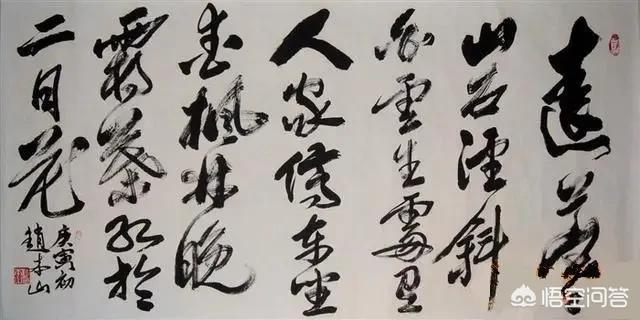 遠上寒
山石径斜
白雲生處有
人家停车坐
爱楓林晚
霜葉红於
二月花
庚寅初
趙本山
悟空问答